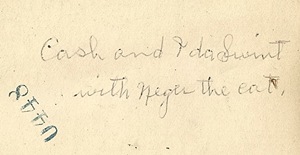 Cash and Ida Swint
with Neger the cat.